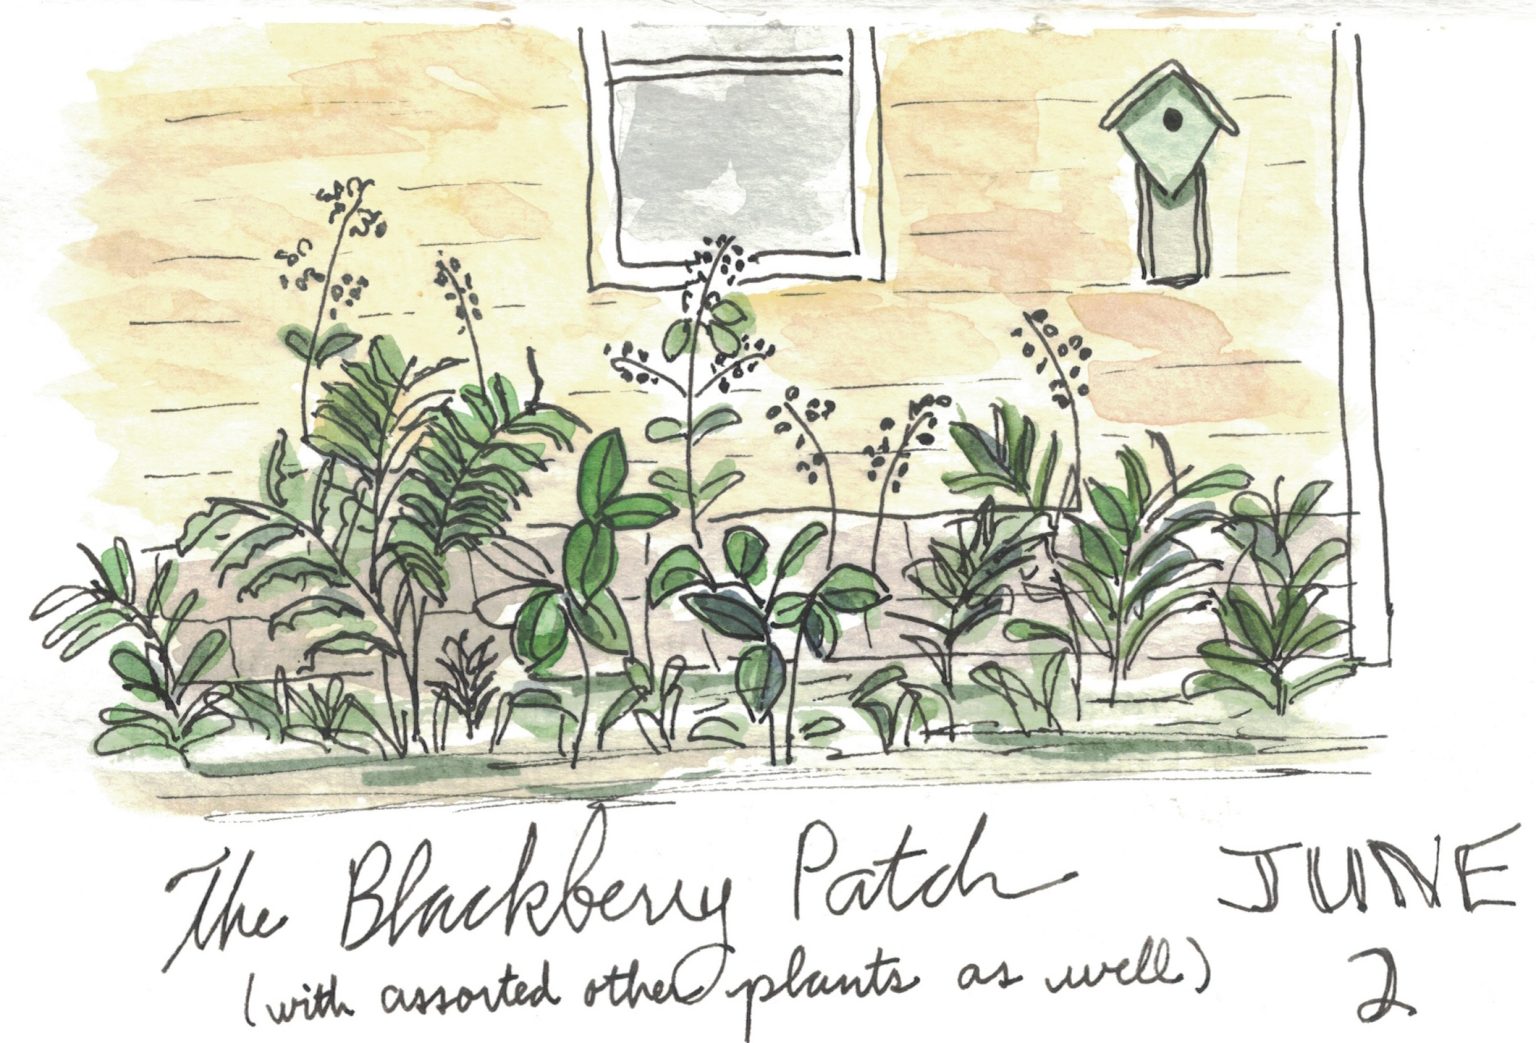 The Blackberry Patch
(with assorted other plants as well)
JUNE
2